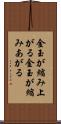 金玉が縮み上
がる金玉が縮
みあがる